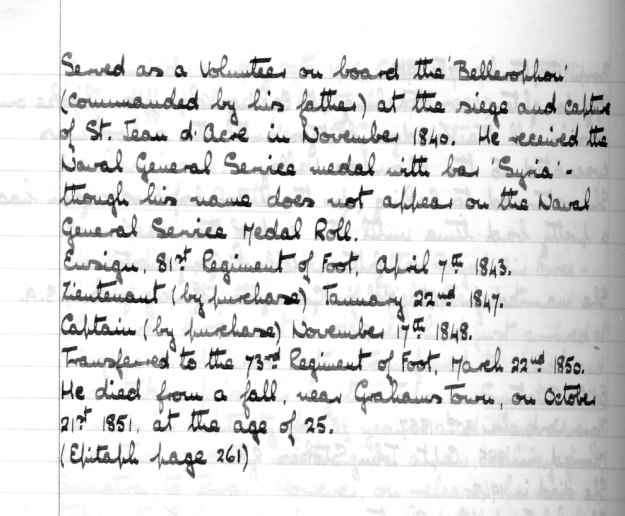 Served as a Volunteer on board the 'Bellerophon'
(commanded by his father) at the siege and capture
of St. Jean d'Acre in November 1840. He received the
Naval General Service medal with bar 'Syria' -
though his name does not appear on the Naval
General Service Medal Roll.
Ensign, 81st Regiment of Foot, April 7th 1843.
Lieutenant (by purchase) January 22nd 1847.
Captain (by purchase) November 17th 1848.
Transferred to the 73rd Regiment of Foot, March 22nd 1850.
He died from a fall, near Grahams Town, on October
21st 1851, at the age of 25.
(Epitaph page 261)